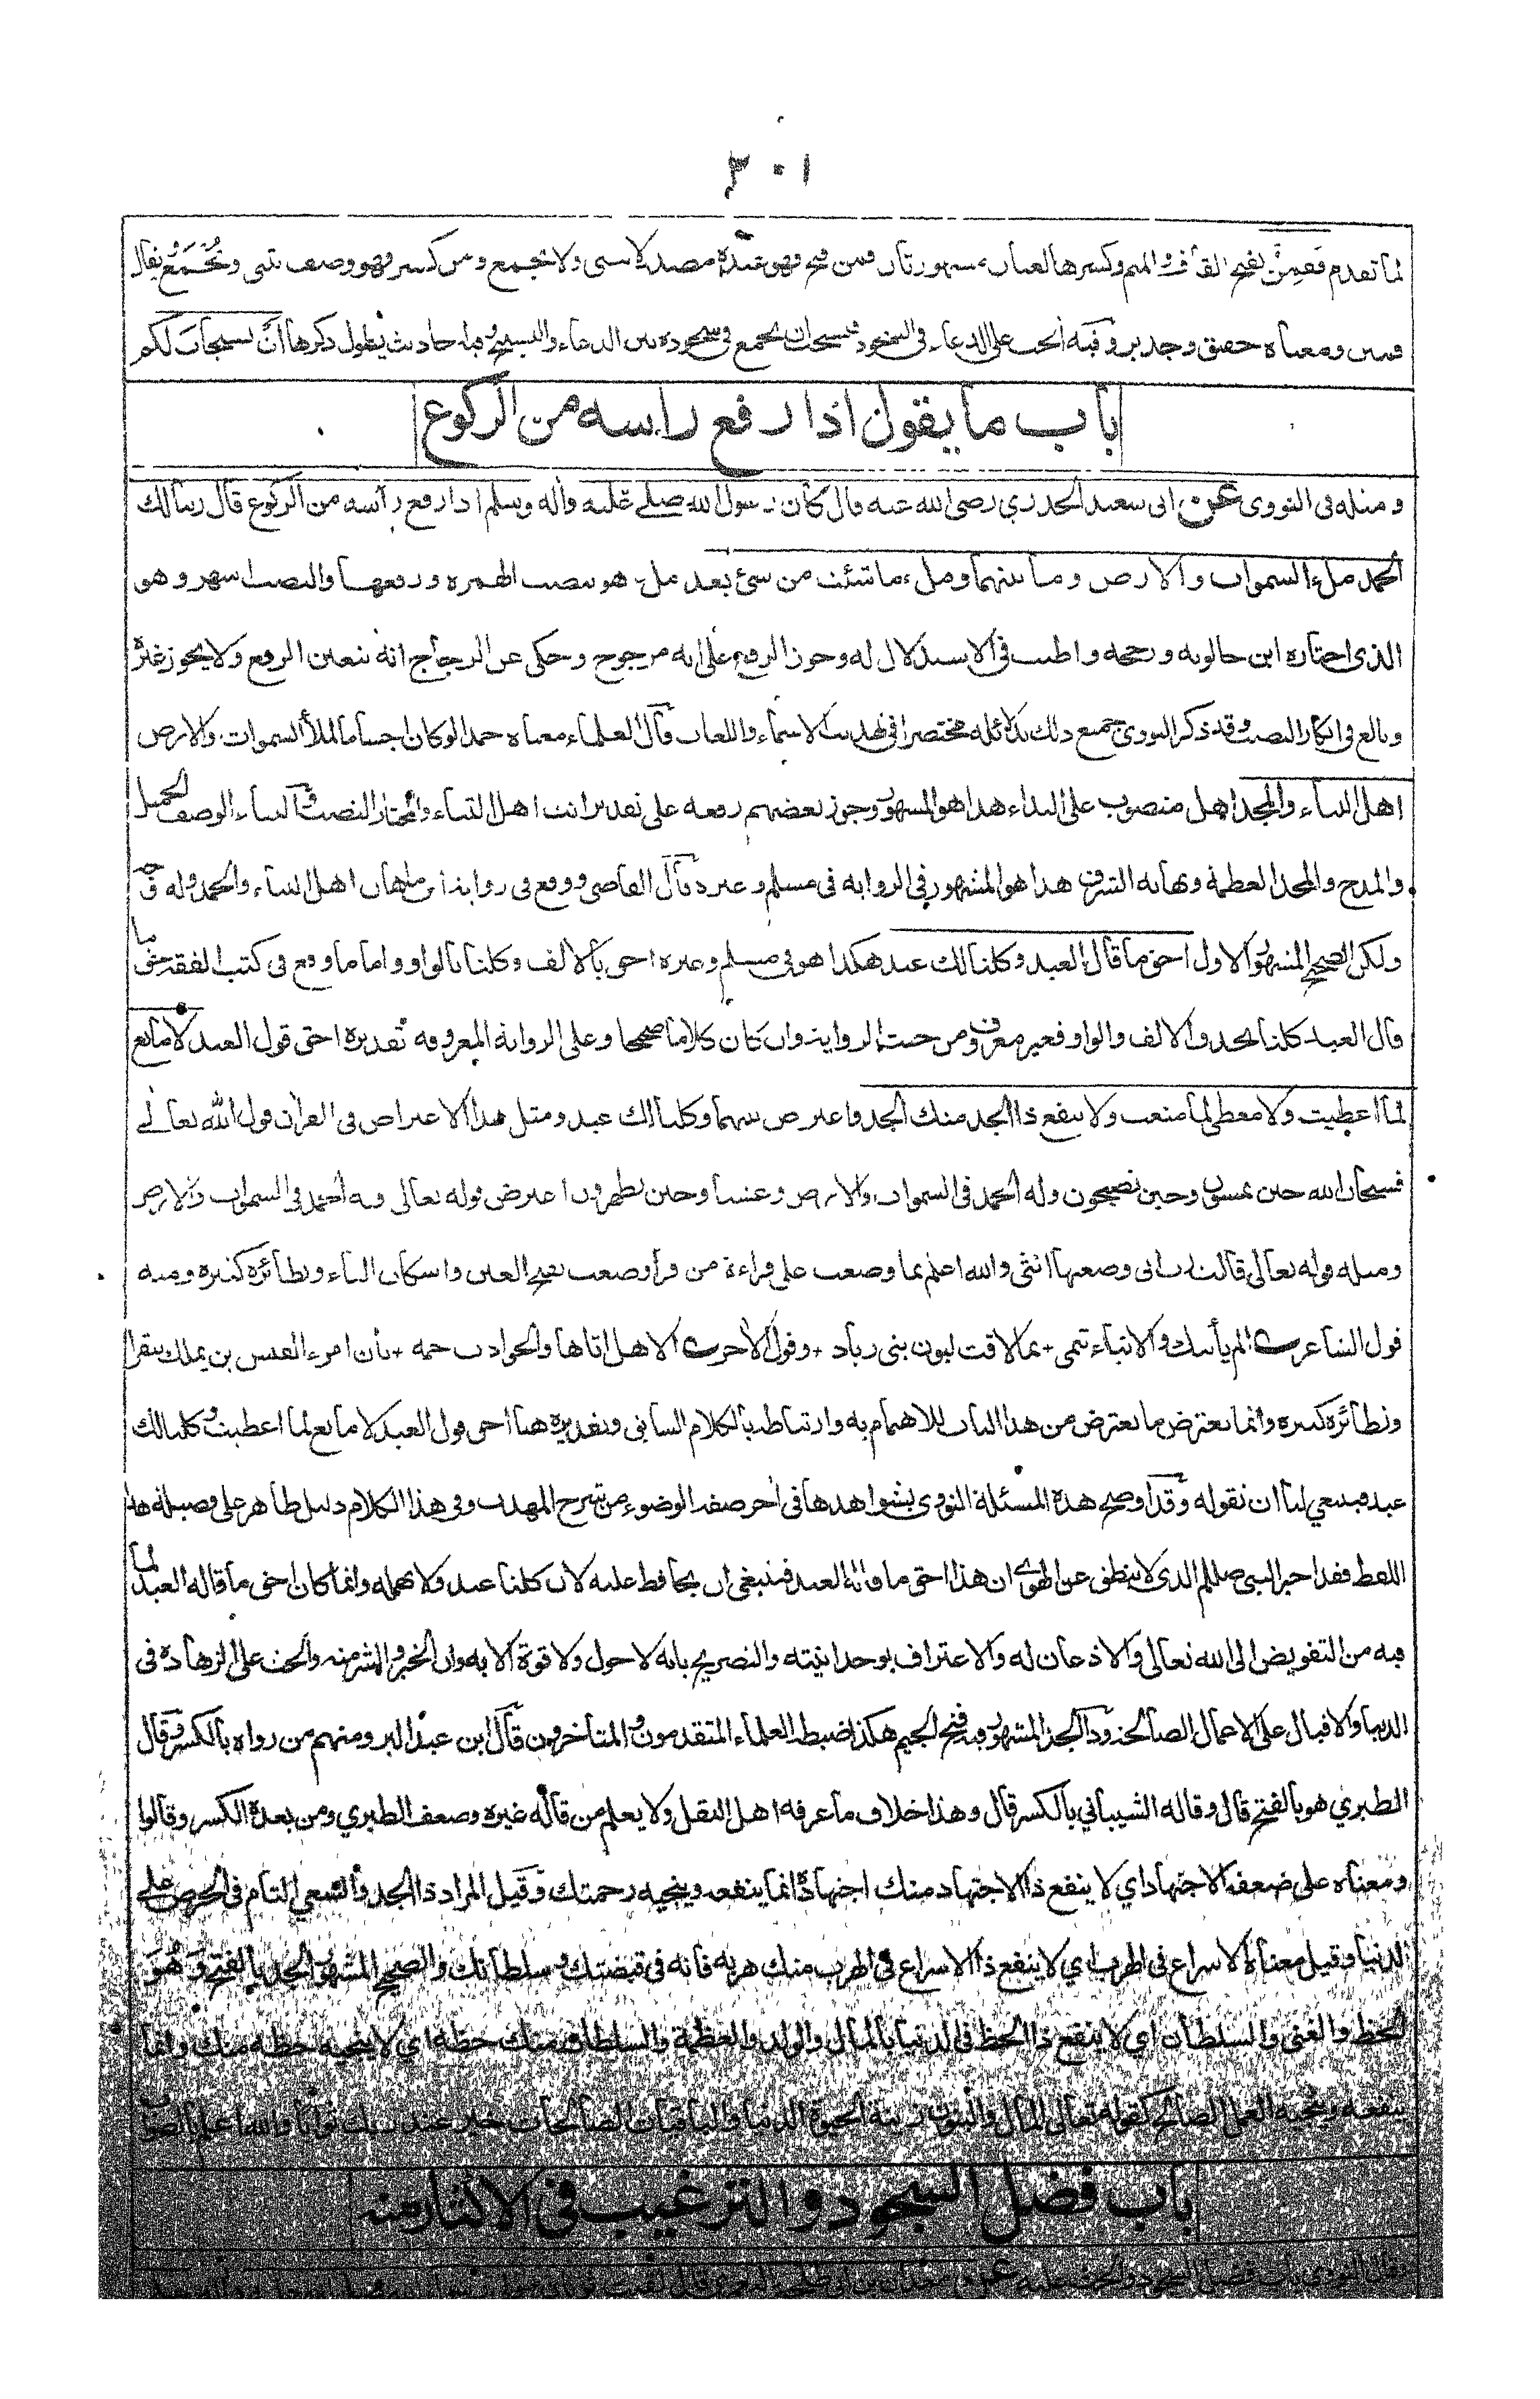 ٣٠١
لما تقدم فقمن بفتح القاف والميم وكسرها لغتان مشهورتان فمن فتح فهو عنده مصدر لا يثنى ولا يجمع ومن كسر فهو وصف يثنى ويجمع يقال
قمين ومعناه حقيق وجدير وفيه الحث على الدعاء في السجود فيستحب ان يجمع في سجوده بين الدعاء والتسبيح وفيه احاديث يطول ذكرها ان يستجاب لكم
باب ما يقول اذا رفع راسه من الركوع
ومثله في النووي عن ابي سعيد الخدري رضي الله عنه قال كان رسول الله صلى عليه وآله وسلم اذا رفع رأسه من الركوع قال ربنا لك
الحمد ملء السموات والارض وما بينهما وملء ما شئت من شئ بعد ملء هو بنصب الهمزة ورفعها والنصب اشهر وهو
الذي اختاره ابن خالويه ورجحه واطنب في الاستدلال له وجوز الرفع على انه مرجوح وحكى عن الزجاج انه يتعين الرفع ولا يجوز غيره
وبالغ في انكار النصب وقد ذكر النووي جميع ذلك بدلائله مختصرا في تهذيب الاسماء واللغات قال العلماء معناه حمدا لو كان اجساما لملأ السموات والارض
اهل الثناء والمجد اهل منصوب على النداء هذا هو المشهور وجوز بعضهم رفعه على تقدير انت اهل الثناء والمختار النصب والثناء الوصف الجميل
والمدح والمجد العظمة ونهاية الشرف هذا هو المشهور في الرواية في مسلم وغيره قال القاضي ووقع في رواية ابن ماهان اهل الثناء والحمد وله وجه
ولكن الصحيح المشهور الاول احق ما قال العبد وكلنا لك عبد هكذا هو في مسلم وغيره احق بالالف وكلنا بالواو واما ما وقع في كتب الفقه حق ما
قال العبد كلنا بحذف الالف والواو فغير معروف من حيث الرواية وان كان كلاما صحيحا وعلى الرواية المعروفة تقديره احق قول العبد لا مانع
لما اعطيت ولا معطي لما منعت ولا ينفع ذا الجد منك الجد واعترض بينهما وكلنا لك عبد ومثل هذا الاعتراض في القرآن قول الله تعالى
فسبحان الله حين تمسون وحين تصبحون وله الحمد في السموات والارض وعشيا وحين تظهرون اعترض قوله تعالى وله الحمد في السموات والارض
ومثله قوله تعالى قالت رب اني وضعتها انثى والله اعلم بما وضعت على قراءة من قرأ وضعت بفتح العين واسكان التاء ونظائره كثيرة ومنه
قول الشاعر الم يأتيك والانباء تنمى بما لاقت لبون بني زياد وقول الآخر الا هل اتاها والحوادث جمة بأن امرء القيس بن يملك بيقرا
ونظائره كثيرة وانما يعترض ما يعترض من هذا الباب للاهتمام به وارتباطه بالكلام السابق وتقديره هنا احق قول العبد لا مانع لما اعطيت وكلنا لك
عبد فينبغي لنا ان نقوله وقد اوضح هذه المسئلة النووي بشواهدها في آخر صفة الوضوء من شرح المهذب وفي هذا الكلام دليل ظاهر على فضيلة هذا
اللفظ فقد اخبر النبي صللم الذي لا ينطق عن الهوى ان هذا احق ما قاله العبد فينبغي ان يحافظ عليه لان كلنا عبد ولا نهمله وانما كان احق ما قاله العبد لما
فيه من التفويض الى الله تعالى والاذعان له والاعتراف بوحدانيته والتصريح بانه لا حول ولا قوة الا به وان الخير والشر منه والحث على الزهادة في
الدنيا والاقبال على الاعمال الصالحة وذا الجد المشهور فيه فتح الجيم هكذا ضبطه العلماء المتقدمون والمتأخرون قال ابن عبد البر ومنهم من رواه بالكسر وقال
الطبري هو بالفتح قال وقاله الشيباني بالكسر قال وهذا خلاف ما عرفه اهل النقل ولا يعلم من قاله غيره وضعف الطبري ومن بعده الكسر وقالوا
ومعناه على ضعفه الاجتهاد اي لا ينفع ذا الاجتهاد منك اجتهاده انما ينفعه وينجيه رحمتك وقيل المراد ذا الجد والسعي التام في الحرص على
الدنيا وقيل معناه الاسراع في الهرب اي لا ينفع ذا الاسراع في الهرب منك هربه فانه في قبضتك وسلطانك والصحيح المشهور الجد بالفتح وهو
الحظ والغنى والسلطان اي لا ينفع ذا الحظ في الدنيا بالمال والولد والعظمة والسلطان منك حظه اي لا ينجيه حظه منك وانما
ينفعه وينجيه العمل الصالح كقوله تعالى المال والبنون زينة الحيوة الدنيا والباقيات الصالحات خير عند ربك ثوابا والله اعلم بالصواب
باب فضل السجود والترغيب في الاكثار منه